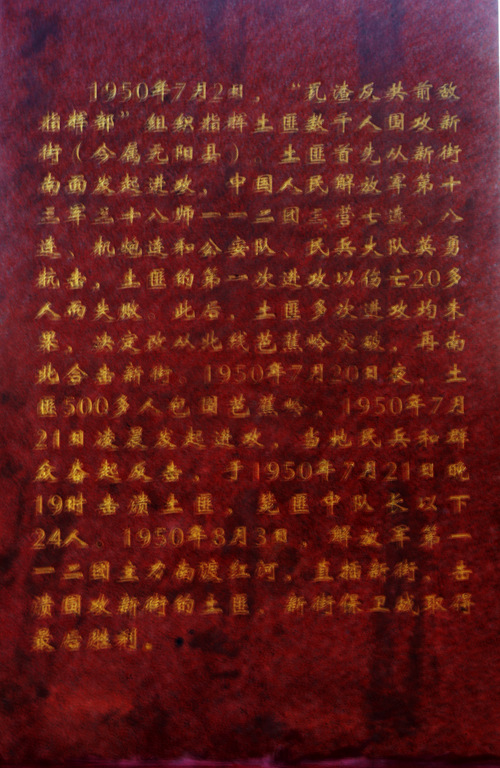 1950年7月2日，“瓦渣反共前敌
指挥部”组织指挥土匪数千人围攻新
街（今属元阳县）。土匪首先从新街
南面发起进攻，中国人民解放军第十
三军三十八师一一二团三营七连、八
连、机炮连和公安队、民兵大队英勇
抗击，土匪的第一次进攻以伤亡20多
人而失败。此后，土匪多次进攻均未
果，决定改从北线芭蕉岭突破，再南
北合击新街。1950年7月20日夜，土
匪500多人包围芭蕉岭，1950年7月
21日凌晨发起进攻，当地民兵和群
众奋起反击，于1950年7月21日晚
19时击溃土匪，毙匪中队长以下
24人。1950年8月3日，解放军第一
一二团主力南渡红河，直插新街，击
溃围攻新街的土匪，新街保卫战取得
最后胜利。